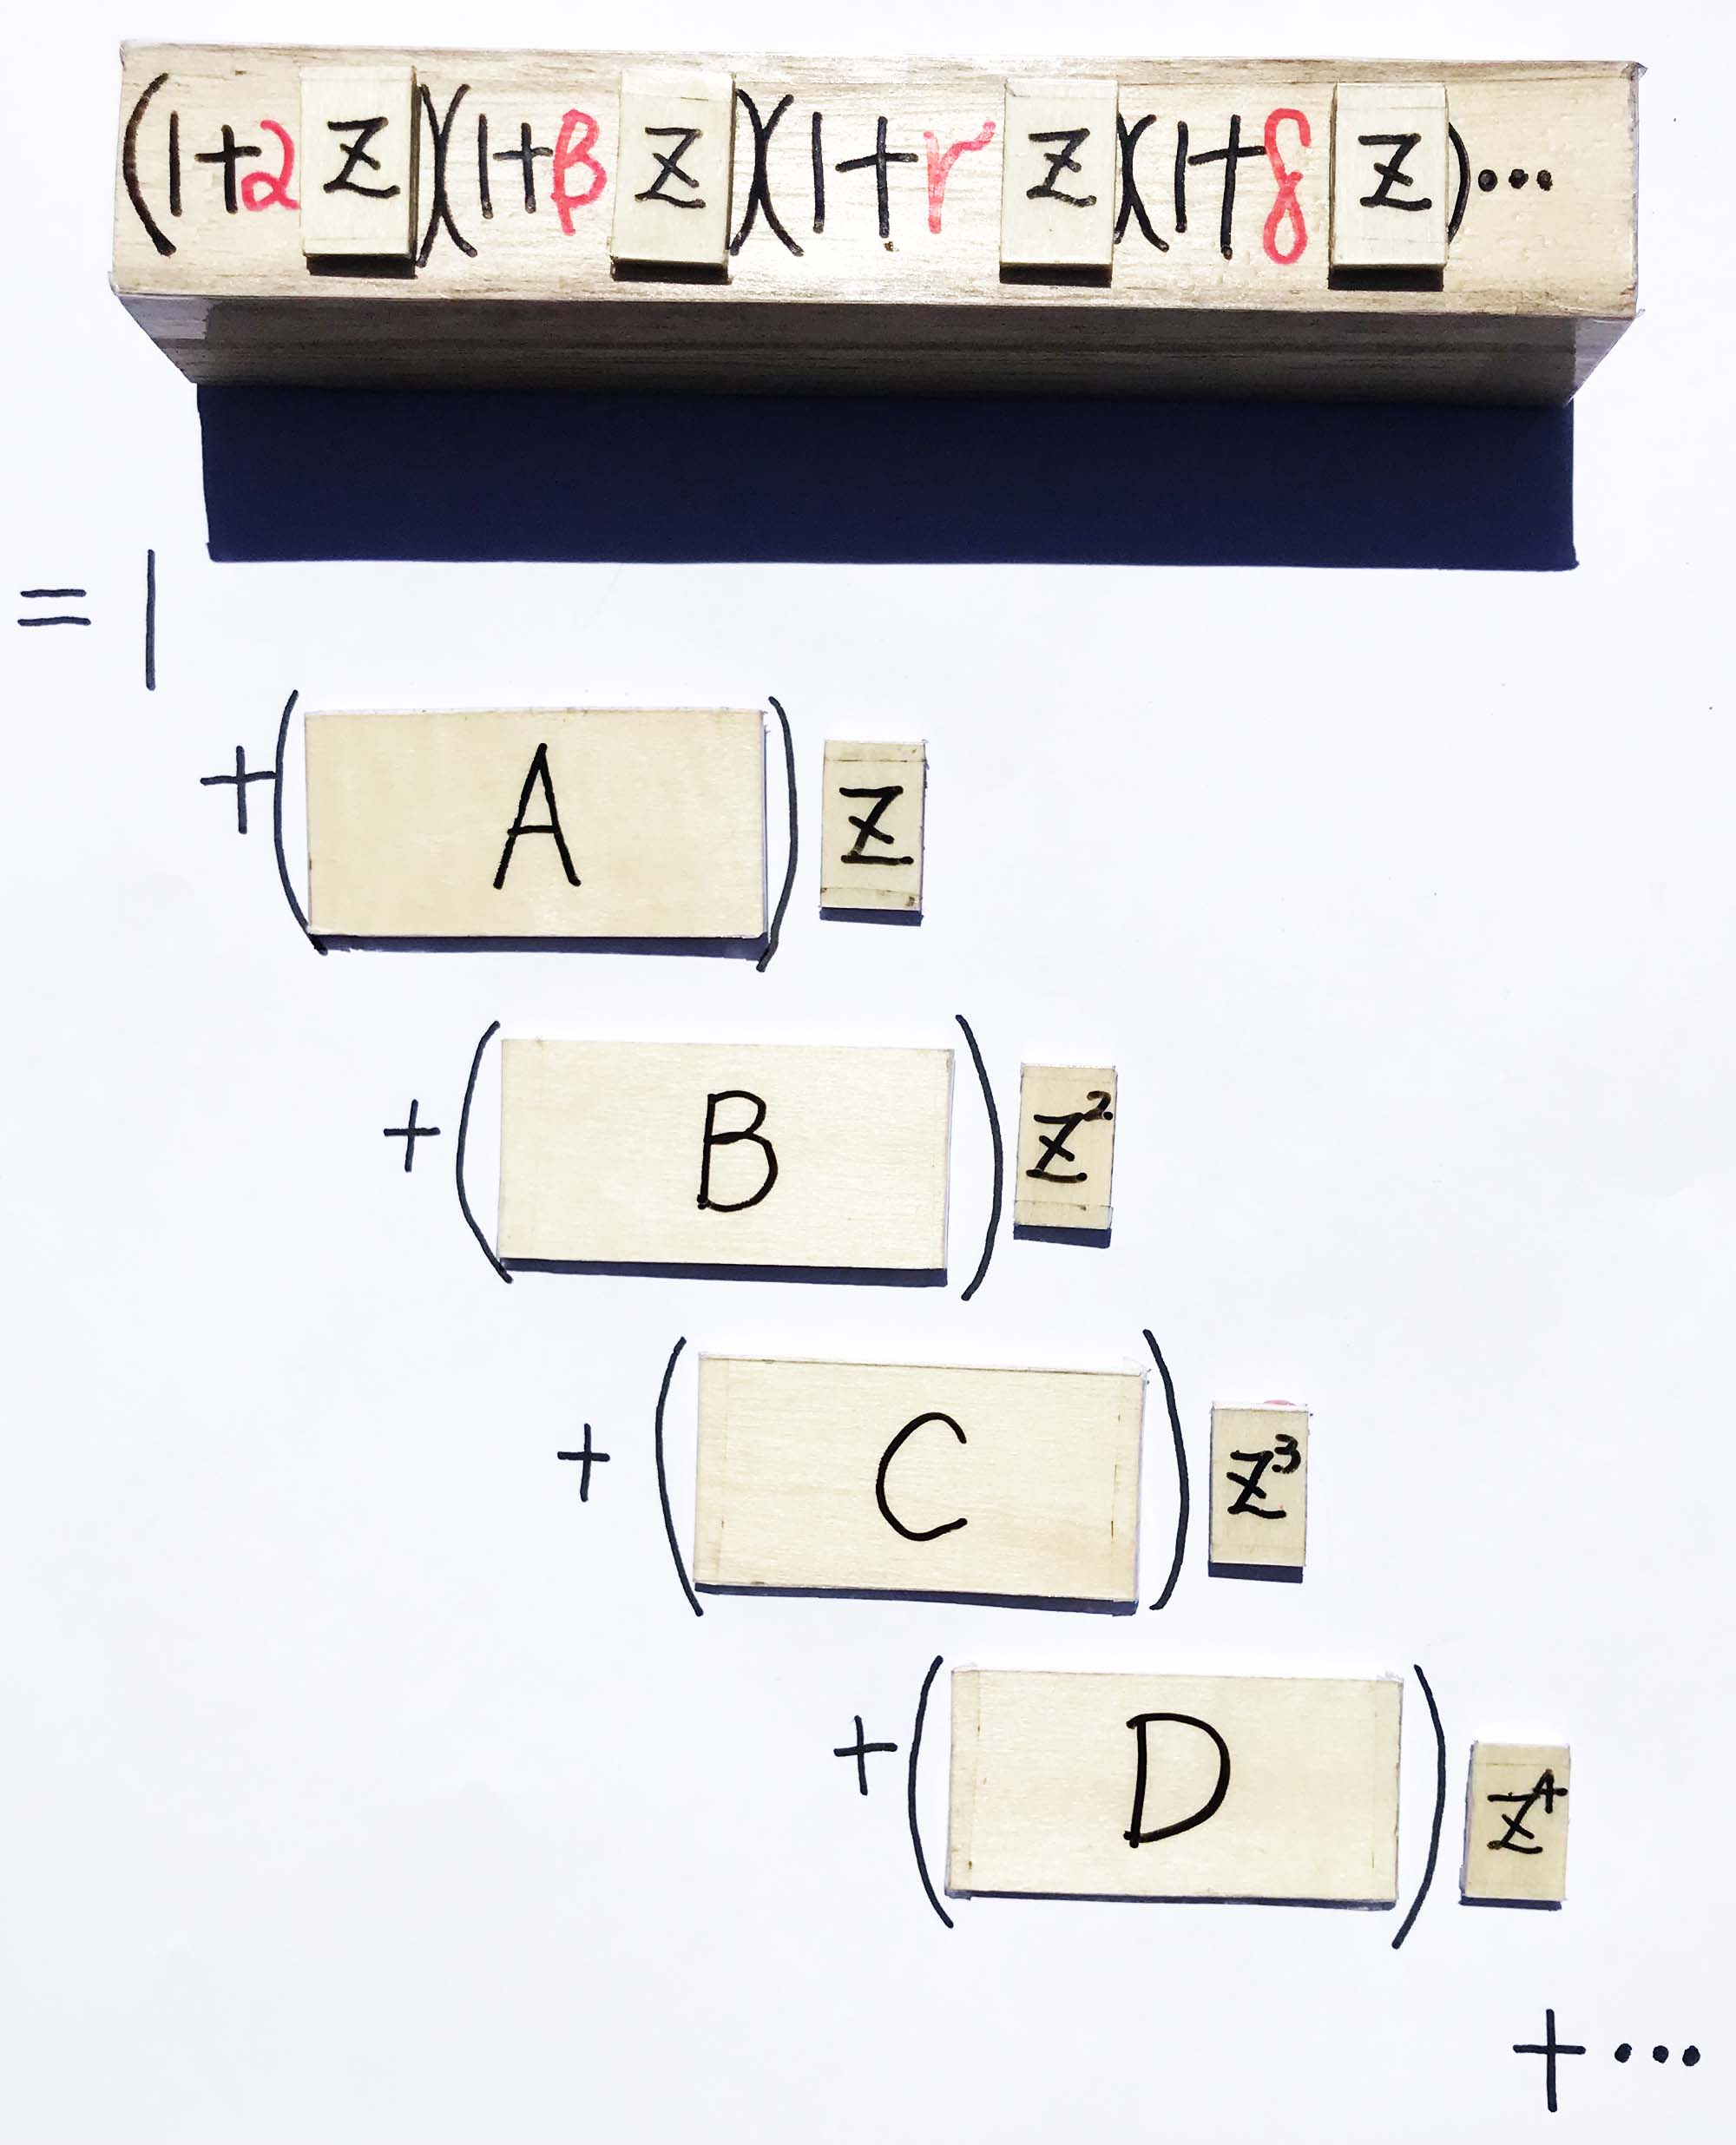 (1+αz)(1+βz)(1+γz)(1+δz)...
= 1
+(A) z
+(B) z²
+(C) z³
+(D) z⁴
+...